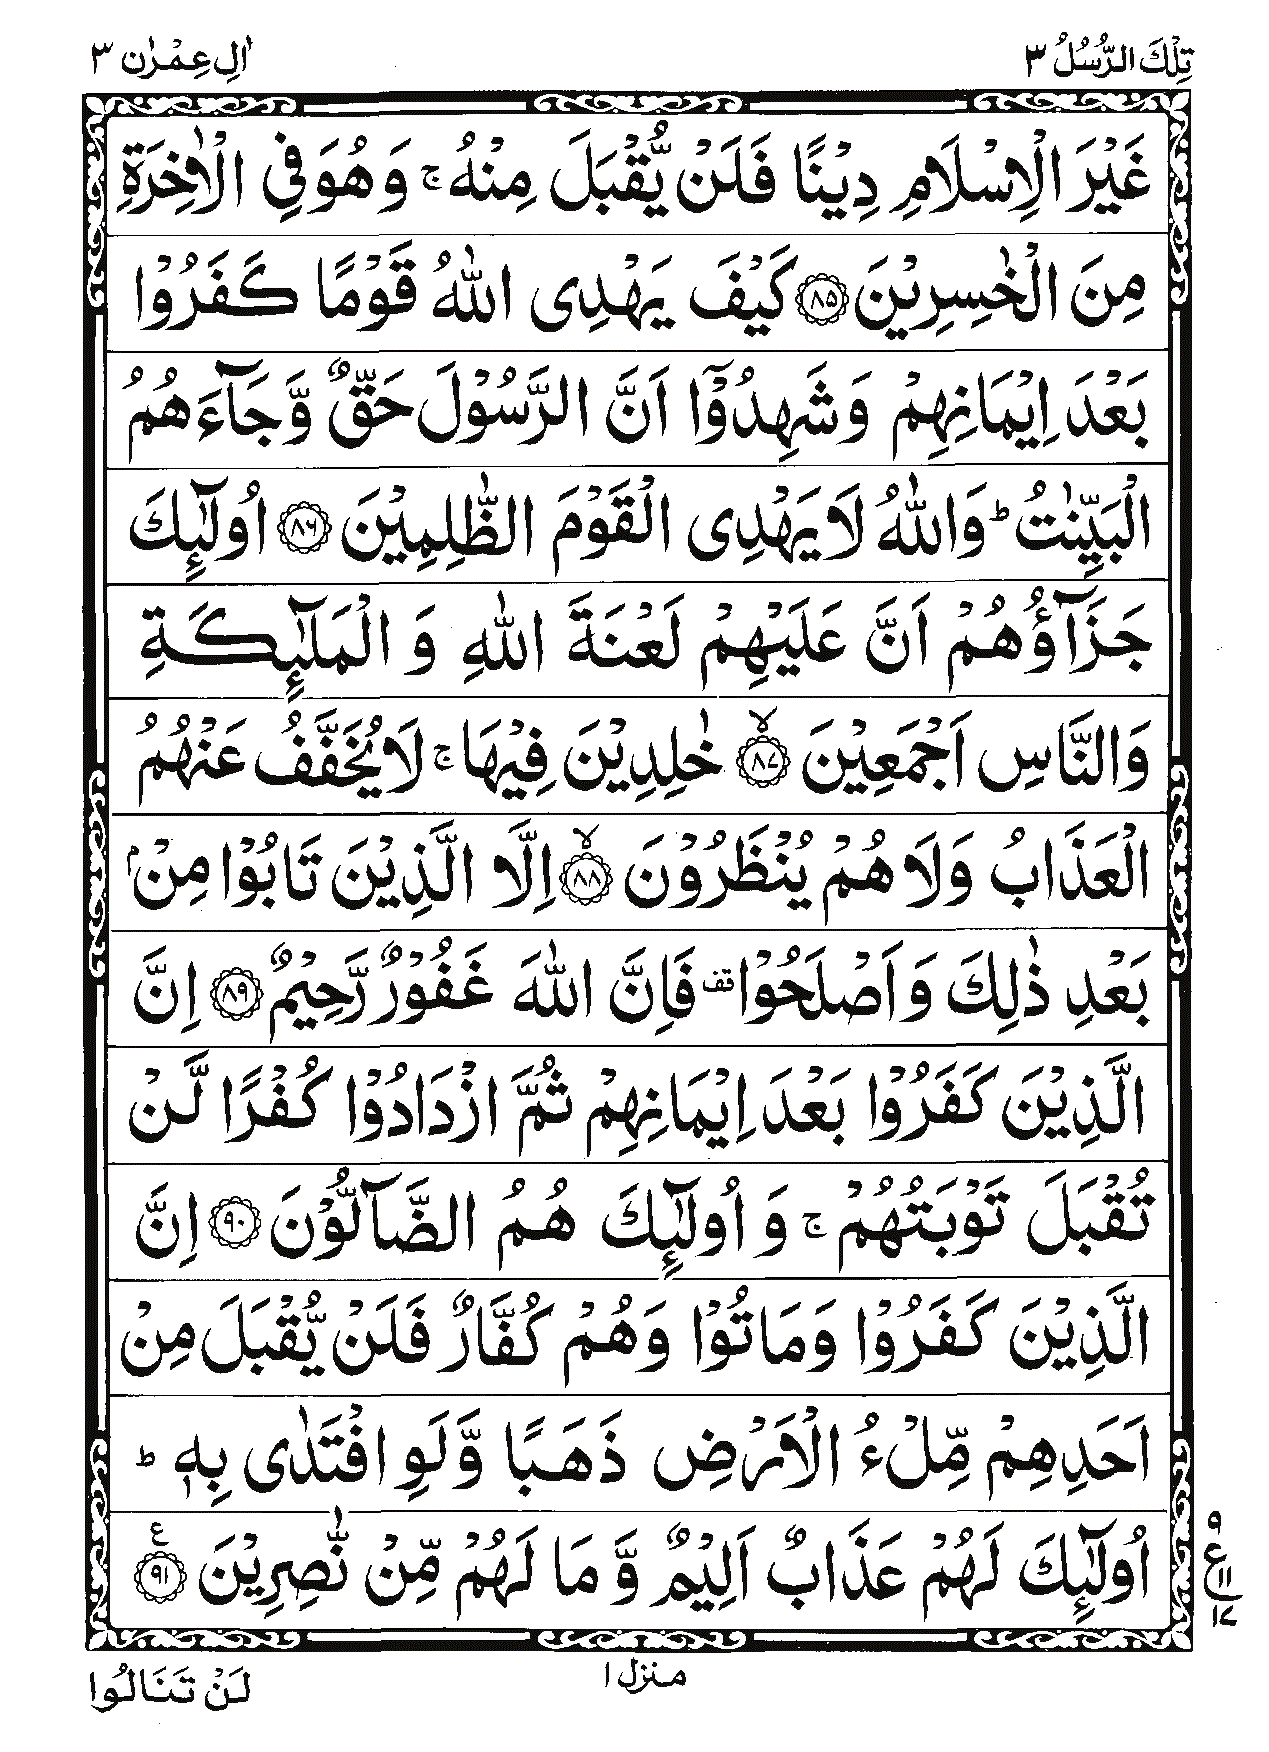 تِلْكَ الرُّسُلُ ٣
اٰلِ عِمْرٰن ٣
غَيْرَ الْاِسْلَامِ دِيْنًا فَلَنْ يُّقْبَلَ مِنْهُ ۚ وَهُوَ فِي الْاٰخِرَةِ
مِنَ الْخٰسِرِيْنَ ﴿٨٥﴾ كَيْفَ يَهْدِى اللّٰهُ قَوْمًا كَفَرُوْا
بَعْدَ اِيْمَانِهِمْ وَشَهِدُوْٓا اَنَّ الرَّسُوْلَ حَقٌّ وَّجَآءَهُمُ
الْبَيِّنٰتُ ؕ وَاللّٰهُ لَا يَهْدِى الْقَوْمَ الظّٰلِمِيْنَ ﴿٨٦﴾ اُولٰٓئِكَ
جَزَآؤُهُمْ اَنَّ عَلَيْهِمْ لَعْنَةَ اللّٰهِ وَ الْمَلٰٓئِكَةِ
وَالنَّاسِ اَجْمَعِيْنَ ﴿٨٧﴾ ۙ خٰلِدِيْنَ فِيْهَا ۚ لَا يُخَفَّفُ عَنْهُمُ
الْعَذَابُ وَلَا هُمْ يُنْظَرُوْنَ ﴿٨٨﴾ ۙ اِلَّا الَّذِيْنَ تَابُوْا مِنْۢ
بَعْدِ ذٰلِكَ وَ اَصْلَحُوْا قف فَاِنَّ اللّٰهَ غَفُوْرٌ رَّحِيْمٌ ﴿٨٩﴾ اِنَّ
الَّذِيْنَ كَفَرُوْا بَعْدَ اِيْمَانِهِمْ ثُمَّ ازْدَادُوْا كُفْرًا لَّنْ
تُقْبَلَ تَوْبَتُهُمْ ۚ وَ اُولٰٓئِكَ هُمُ الضَّآلُّوْنَ ﴿٩٠﴾ اِنَّ
الَّذِيْنَ كَفَرُوْا وَمَاتُوْا وَهُمْ كُفَّارٌ فَلَنْ يُّقْبَلَ مِنْ
اَحَدِهِمْ مِّلْءُ الْاَرْضِ ذَهَبًا وَّ لَوِ افْتَدٰى بِهٖ ؕ
اُولٰٓئِكَ لَهُمْ عَذَابٌ اَلِيْمٌ وَّ مَا لَهُمْ مِّنْ نّٰصِرِيْنَ ﴿٩١﴾ ع
٩
ع ١١
١٧
منزل ١
لَنْ تَنَالُوا